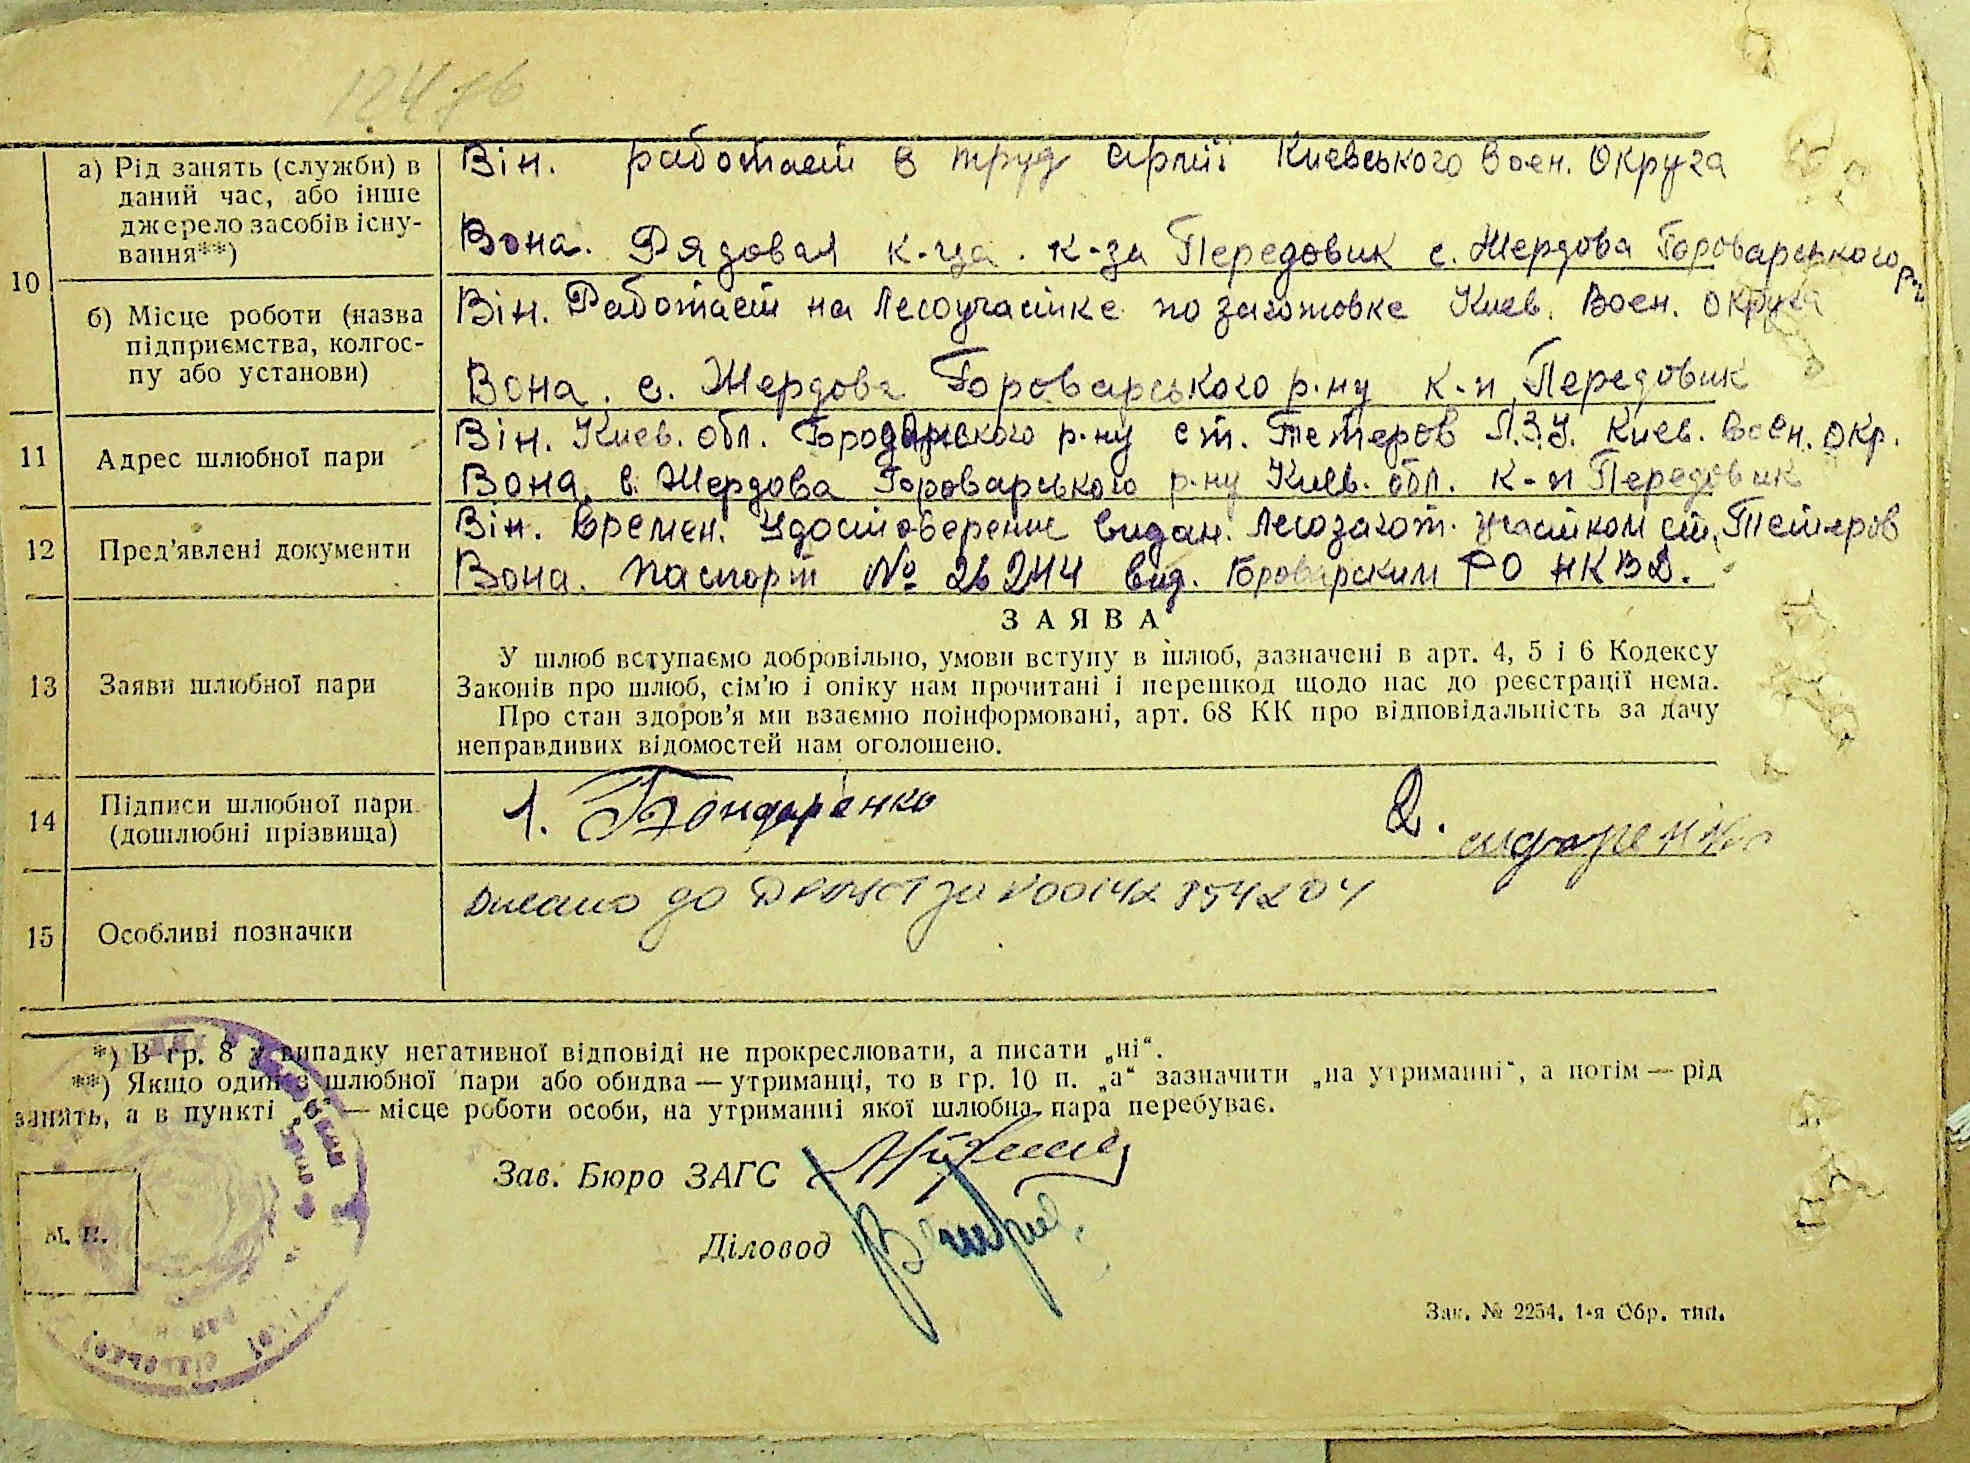 10
а) Рід занять (служби) в
даний час, або інше
джерело засобів існу-
вання**)
Він. работает в труд армії Киевського Воен. Округа
Вона. Рядовая к-ца. к-за Передовик с. Жердова Броварського р-н
б) Місце роботи (назва
підприємства, колгос-
пу або установи)
Він. Работает на Лесоучастке по заготовке Киев. Воен. Округа
Вона. с. Жердова Броварського р-ну к-п Передовик
11 Адрес шлюбної пари
Він. Киев. обл. р-ну ст. Тетеров Л.З.У. Киев. Воен. Окр.
Вона. с. Жердова Броварського р-ну Київ. обл. к-п Передовик
12 Пред'явлені документи
Він. Времен. Удостоверение видан. Лесозагот. участком ст. Тетеров
Вона. паспорт № 26244 вид. Броварским РО НКВД.
ЗАЯВА
13 Заяви шлюбної пари
У шлюб вступаємо добровільно, умови вступу в шлюб, зазначені в арт. 4, 5 і 6 Кодексу
Законів про шлюб, сім'ю і опіку нам прочитані і перешкод щодо нас до реєстрації нема.
Про стан здоров'я ми взаємно поінформовані, арт. 68 КК про відповідальність за дачу
неправдивих відомостей нам оголошено.
14 Підписи шлюбної пари
(дошлюбні прізвища)
1. Бондаренко
2. сидоренко
15 Особливі позначки
внесано до ДРАЦСГ за
*) В гр. 8 у випадку негативної відповіді не прокреслювати, а писати „ні“.
**) Якщо один з шлюбної пари або обидва — утриманці, то в гр. 10 п. „а“ зазначити „на утриманні“, а потім — рід
занять, а в пункті „б“ — місце роботи особи, на утриманні якої шлюбна пара перебуває.
Зав. Бюро ЗАГС
Діловод
М. П.
Зак. № 2254. 1-я Обр. тип.